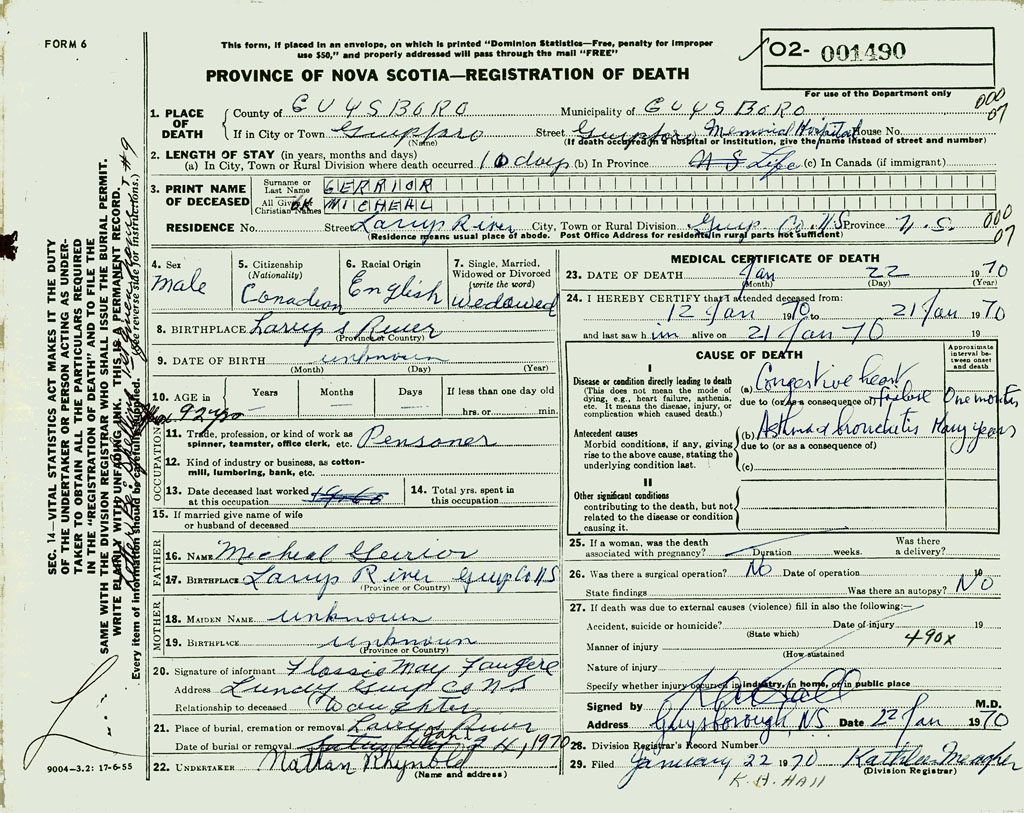 FORM 6
This form, if placed in an envelope, on which is printed "Dominion Statistics—Free, penalty for improper
use $50," and properly addressed will pass through the mail "FREE"
O2- 001490
For use of the Department only
PROVINCE OF NOVA SCOTIA—REGISTRATION OF DEATH
1. PLACE OF DEATH
County of GUYSBORO Municipality of GUYSBORO
000
07
If in City or Town Street Memorial Hospital House No.
(Name) (If death occurred in a hospital or institution, give the name instead of street and number)
2. LENGTH OF STAY (in years, months and days)
(a) In City, Town or Rural Division where death occurred 10 days (b) In Province N S Life (c) In Canada (if immigrant)
3. PRINT NAME OF DECEASED
Surname or Last Name GERRIOR
All Given or Christian Names MICHEAL
RESIDENCE No. Street Larrys River City, Town or Rural Division Guys. Co. N.S Province N.S.
(Residence means usual place of abode. Post Office Address for residents in rural parts not sufficient)
000
07
4. Sex
Male
5. Citizenship
(Nationality)
Canadian
6. Racial Origin
English
7. Single, Married,
Widowed or Divorced
(write the word)
Wedowed
8. BIRTHPLACE Larrys River
(Province or Country)
9. DATE OF BIRTH unknown
(Month) (Day) (Year)
10. AGE in
Years Months Days If less than one day old
hrs. or min.
92 yrs
OCCUPATION
11. Trade, profession, or kind of work as
spinner, teamster, office clerk, etc. Pensoner
12. Kind of industry or business, as cotton-
mill, lumbering, bank, etc.
13. Date deceased last worked
at this occupation
14. Total yrs. spent in
this occupation
15. If married give name of wife
or husband of deceased
FATHER
16. NAME Micheal Gerrior
17. BIRTHPLACE Larrys River Guys Co NS
(Province or Country)
MOTHER
18. MAIDEN NAME unknown
19. BIRTHPLACE unknown
(Province or Country)
20. Signature of informant Flossie May Faugere
Address Lundy Guys Co NS
Relationship to deceased Daughter
21. Place of burial, cremation or removal Larrys River
Date of burial or removal Jan 24, 1970
22. UNDERTAKER Nathan Rhynold
(Name and address)
MEDICAL CERTIFICATE OF DEATH
23. DATE OF DEATH Jan 22 1970
(Month) (Day) (Year)
24. I HEREBY CERTIFY that I attended deceased from:
12 Jan 1970 to 21 Jan 1970
and last saw him alive on 21 Jan 70 19
CAUSE OF DEATH
Approximate
interval be-
tween onset
and death
I
Disease or condition directly leading to death
(This does not mean the mode of
dying, e.g., heart failure, asthenia,
etc. It means the disease, injury, or
complication which caused death.)
(a) Congestive heart
due to (or as a consequence of) failure One month
Antecedent causes
Morbid conditions, if any, giving
rise to the above cause, stating the
underlying condition last.
(b) Asthma & bronchitis Many years
due to (or as a consequence of)
(c)
II
Other significant conditions
contributing to the death, but not
related to the disease or condition
causing it.
25. If a woman, was the death
associated with pregnancy? Duration weeks. Was there
a delivery?
26. Was there a surgical operation? No Date of operation 19
State findings Was there an autopsy? NO
27. If death was due to external causes (violence) fill in also the following:—
Accident, suicide or homicide? Date of injury 19
(State which)
Manner of injury 490x
(How sustained
Nature of injury
Specify whether injury occurred in industry, in home, or in public place
Signed by M.D.
Address Guysborough, NS Date 22 Jan 1970
28. Division Registrar's Record Number
29. Filed January 22 1970 Kathleen Meagher
(Division Registrar)
K. H. HAll
SEC. 14—VITAL STATISTICS ACT MAKES IT THE DUTY
OF THE UNDERTAKER OR PERSON ACTING AS UNDER-
TAKER TO OBTAIN ALL THE PARTICULARS REQUIRED
IN THE "REGISTRATION OF DEATH" AND TO FILE THE
SAME WITH THE DIVISION REGISTRAR WHO SHALL ISSUE THE BURIAL PERMIT.
WRITE PLAINLY WITH UNFADING INK. THIS IS A PERMANENT RECORD.
Every item of information should be carefully supplied. (See reverse side for instructions.)
9004-3.2: 17-6-55